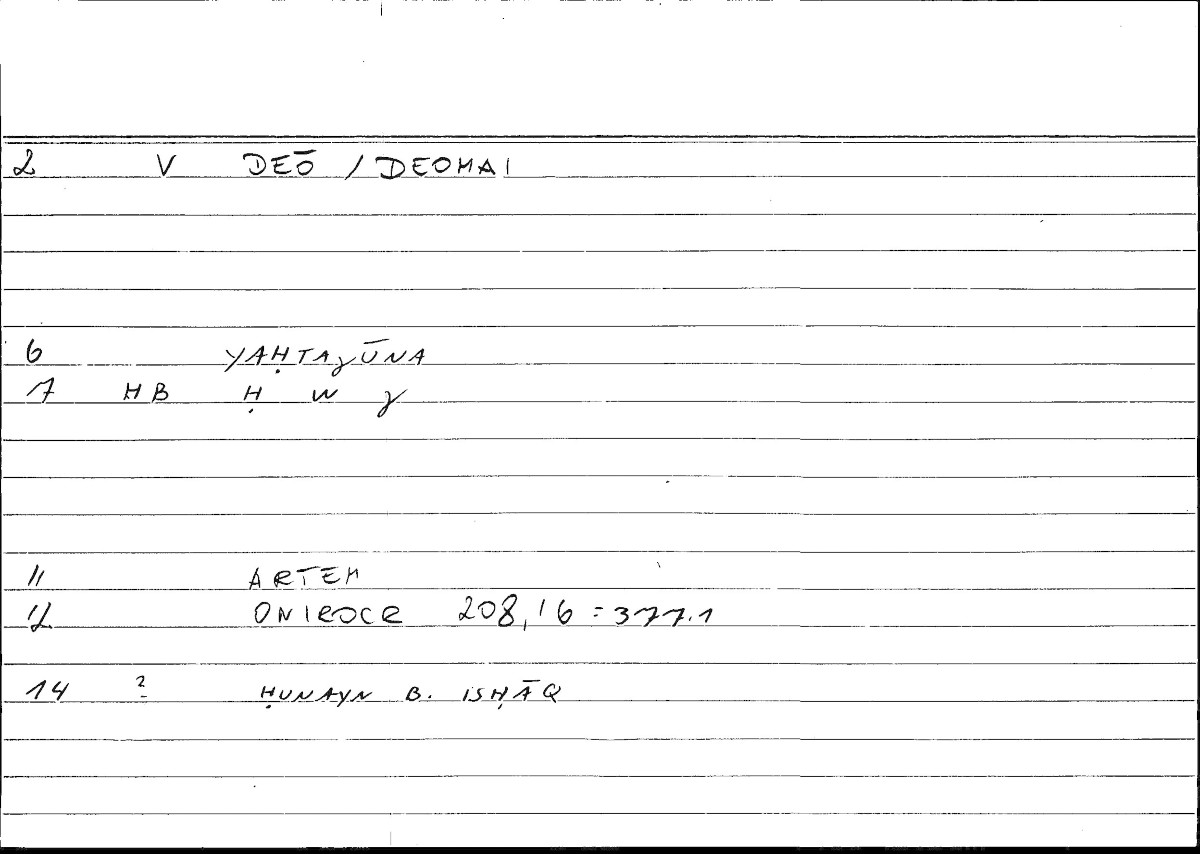 2 V DEŌ / DEOMAI
6 YAḤTAɣŪNA
7 HB Ḥ W ɣ
11 ARTEM
12 ONIROCR 208,16 = 377.1
14 2 ḤUNAYN B. ISḤĀQ